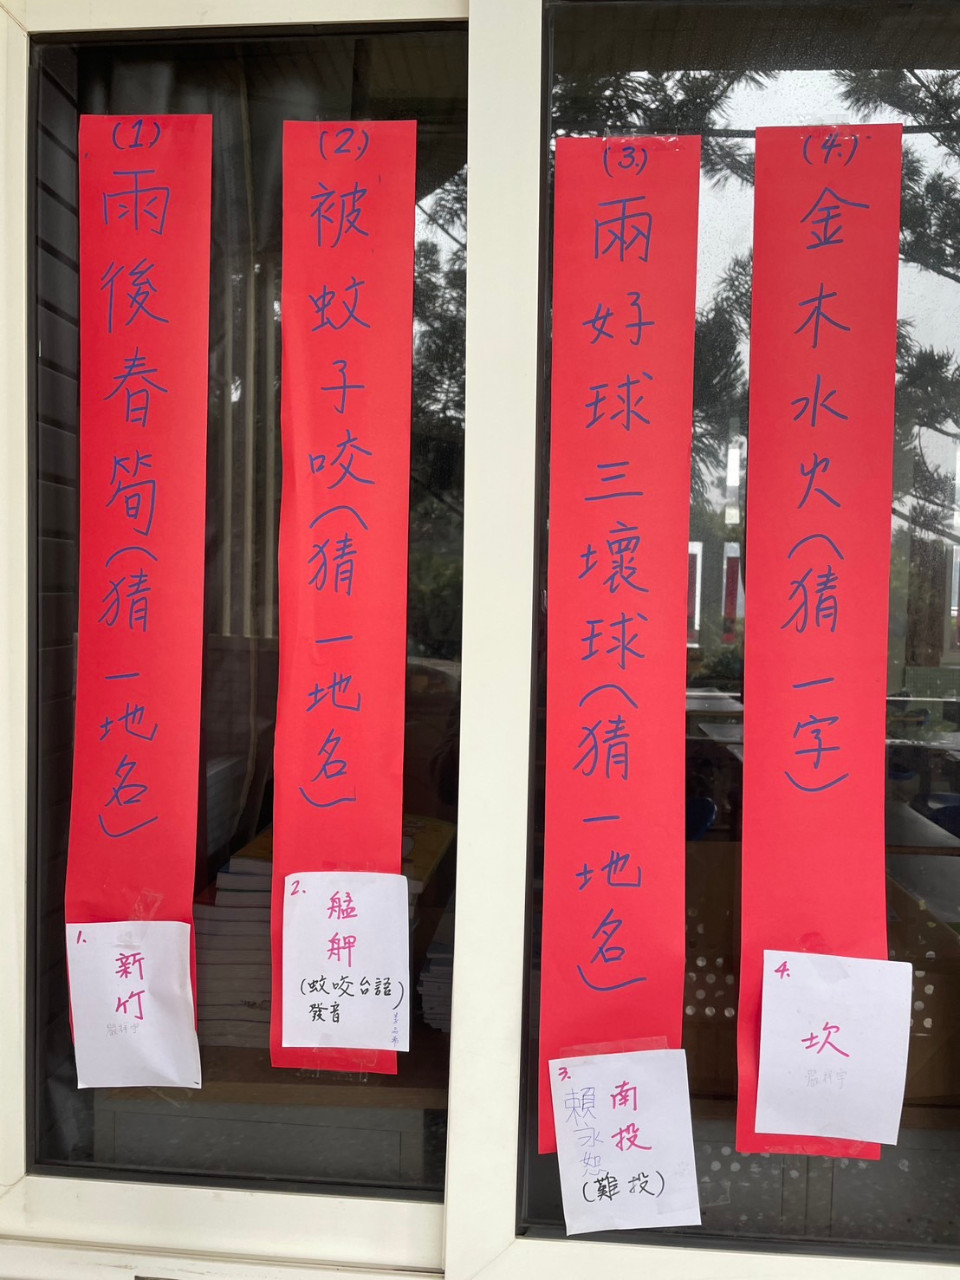 (1)
雨後春筍(猜一地名)
1.
新竹
(2.)
被蚊子咬(猜一地名)
2.
艋舺
(蚊咬台語)
發音
(3.)
兩好球三壞球(猜一地名)
3.
南投
賴永恕
(難投)
(4.)
金木水火(猜一字)
4.
坎